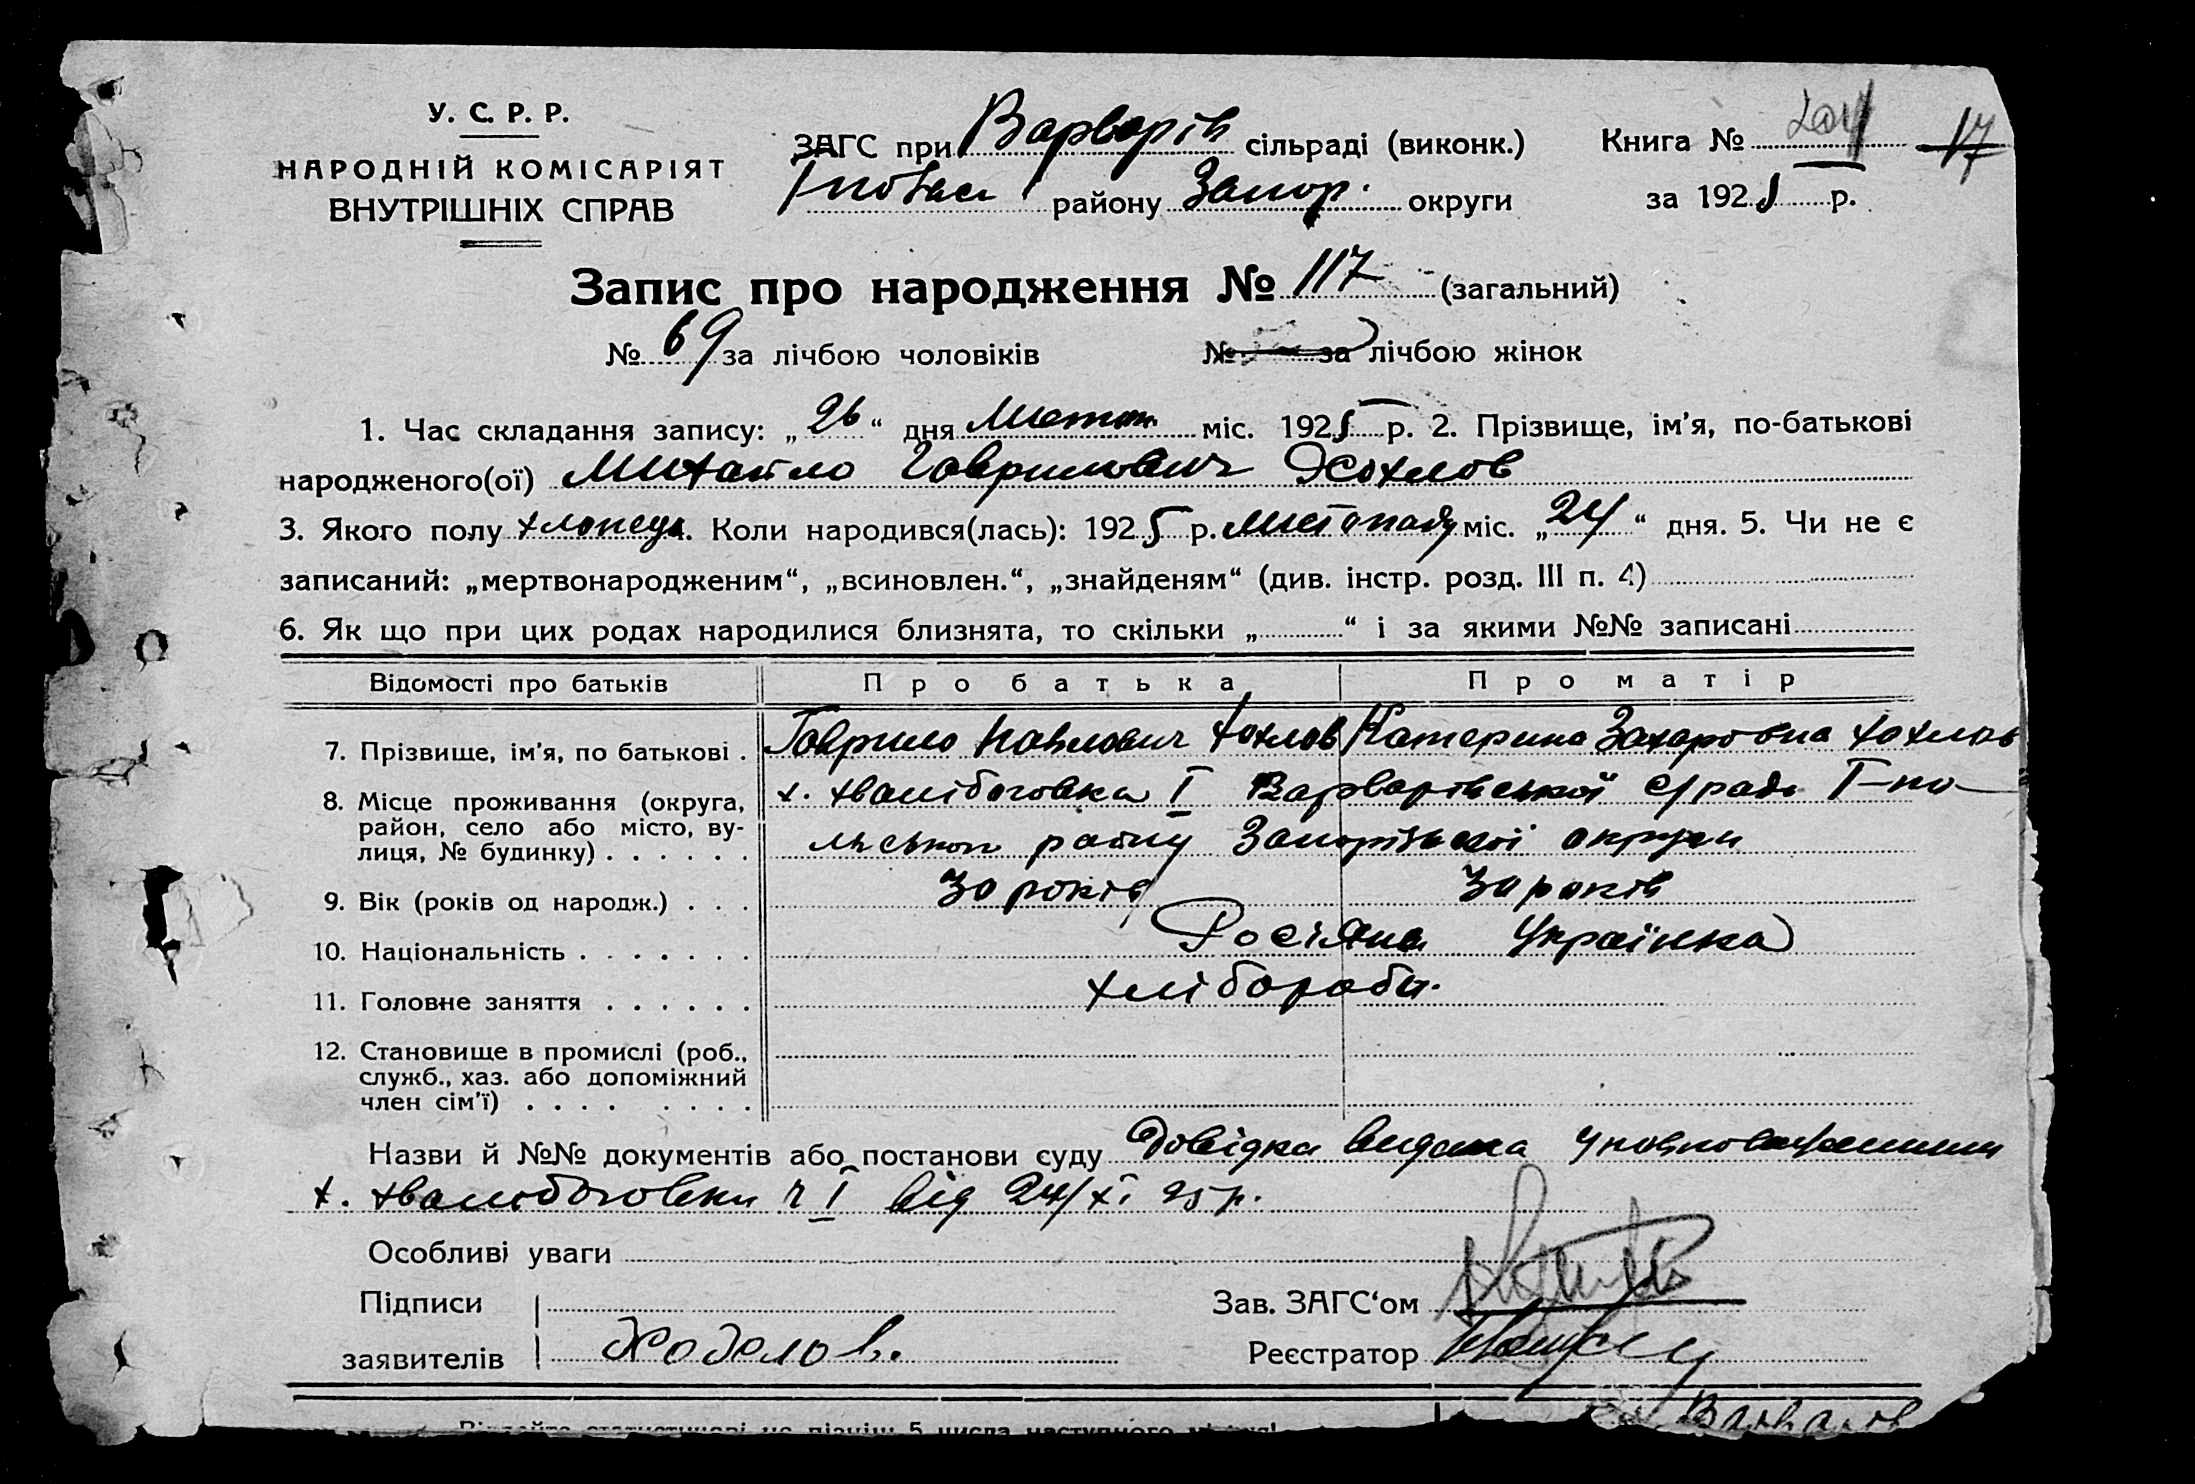 У. С. Р. Р.
НАРОДНІЙ КОМІСАРІЯТ
ВНУТРІШНІХ СПРАВ
ЗАГС при Варварів сільраді (виконк.)
району Запор. округи
Книга № 204 17
за 1925 р.
Запис про народження № 117 (загальний)
№ 69 за лічбою чоловіків № за лічбою жінок
1. Час складання запису: „ 26 “ дня Листоп. міс. 1925 р. 2. Прізвище, ім'я, по-батькові
народженого(ої) Михайло Гаврилович Хохлов
3. Якого полу хлопець. Коли народився(лась): 1925 р. листопаду міс. „ 24 “ дня. 5. Чи не є
записаний: „мертвонародженим“, „всиновлен.“, „знайденям“ (див. інстр. розд. III п. 4)
6. Як що при цих родах народилися близнята, то скільки „ “ і за якими №№ записані
Відомості про батьків Про батька Про матір
7. Прізвище, ім'я, по батькові . Гаврило Павлович Хохлов Катерина Захаровна Хохлов
8. Місце проживання (округа, х. Хвалібоговка I Варварівської с/ради Г-по-
район, село або місто, ву-
лиця, № будинку) . . . . . . льського райну Запорізької округи
9. Вік (років од народж.) . . . 30 років 30 років
10. Національність . . . . . . . Росіяна Українка
11. Головне заняття . . . . . . хлібороби.
12. Становище в промислі (роб.,
служб., хаз. або допоміжний
член сім'ї) . . . . . . . .
Назви й №№ документів або постанови суду Довідка видана уповноваженим
х. Хвалибоговки ч I від 24/XI 25 р.
Особливі уваги
Підписи
заявителів Хохлов.
Зав. ЗАГС'ом
Реєстратор
5 числа наступного